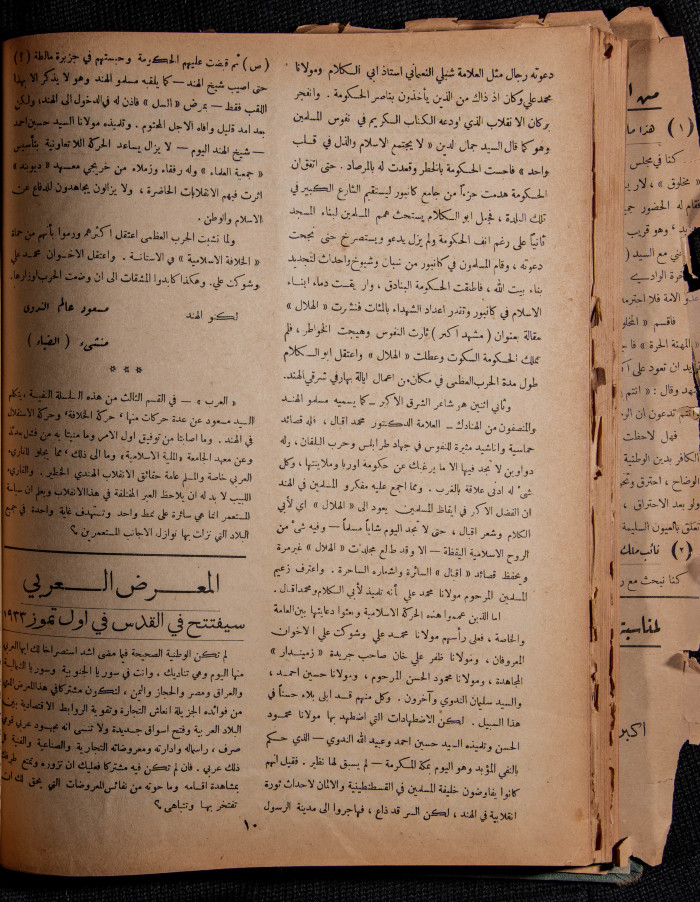 دعوته رجال مثل العلامة شبلي النعماني استاذ ابي الكلام ومولانا
محمد علي وكان اذ ذاك من الذين يأخذون بناصر الحكومة . وانفجر
بركان الانقلاب الذي اودعه الكتاب الكريم في نفوس المسلمين
وهو كما قال السيد جمال الدين « لا يجتمع الاسلام والذل في قلب
واحد » فاحست الحكومة بالخطر وقعدت له بالمرصاد . حتى اتفق ان
الحكومة هدمت جزءاً من جامع كانبور ليستقيم الشارع الكبير في
تلك البلدة ، فجعل ابو الكلام يستحث همم المسلمين لبناء المسجد
ثانياً على رغم انف الحكومة ولم يزل يدعو ويستصرخ حتى نجحت
دعوته ، وقام المسلمون في كانبور من شبان وشيوخ واحداث لتجديد
بناء بيت الله ، فاطلقت الحكومة البنادق ، واريقت دماء ابناء
الاسلام في كانبور وتقدر اعداد الشهداء بالمئات فنشرت « الهلال »
مقالة بعنوان ( مشهد اكبر ) ثارت النفوس وهيجت الخواطر ، فلم
تملك الحكومة السكوت وعطلت « الهلال » واعتقل ابو الكلام
طول مدة الحرب العظمى في مكان من اعمال ايالة بهار في شرقي الهند.
وثاني اثنين هو شاعر الشرق الاكبر – كما يسميه مسلمو الهند
والمنصفون من الهنادك – العلامة الدكتور محمد اقبال ، فله قصائد
حماسية واناشيد مثيرة للنفوس في جهاد طرابلس وحرب البلقان ، وله
دواوين لا تجد فيها الا ما يرغبك عن حكومة اوربا وملابنتها ، وكل
شيء له ادنى علاقة بالغرب . ومما اجمع عليه مفكرو المسلمين في الهند
ان الفضل الاكبر في ايقاظ المسلمين يعود الى « الهلال » اي لأبي
الكلام وشعر اقبال ، حتى لا تجد اليوم شاباً مسلماً – وفيه شيء من
الروح الاسلامية اليقظة – الا وقد طالع مجلدات « الهلال » غير مرة
ويحفظ قصائد « اقبال » السائرة واشعاره الساحرة . واعترف زعيم
المسلمين المرحوم مولانا محمد علي أنه تلميذ لأبي الكلام ومحمد اقبال .
اما الذين عمموا هذه الحركة الاسلامية وبعثوا دعايتها بين العامة
والخاصة ، فعلى رأسهم مولانا محمد علي وشوكت علي الاخوان
المعروفان ، ومولانا ظفر علي خان صاحب جريدة « زميندار »
المجاهدة ، ومولانا محمود الحسن المرحوم ، ومولانا حسين احمد ،
والسيد سلمان الندوي وآخرون . وكل منهم قد ابلى بلاء حسناً في
هذا السبيل . لكن الاضطهادات التي اضطهد بها مولانا محمود
الحسن وتلميذه السيد حسين احمد وعبيد الله الندوي – الذي حكم
بالنفي المؤبد وهو اليوم بمكة المكرمة – لم يسبق لها نظير . فقيل انهم
كانوا يفاوضون خليفة المسلمين في القسطنطينية والالمان لاحداث ثورة
انقلابية في الهند ، لكن السر قد ذاع ، فهاجروا الى مدينة الرسول
(ص) ثم قبضت عليهم الحكومة وحبستهم في جزيرة مالطة (؟)
حتى اصيب شيخ الهند – كما يلقبه مسلمو الهند وهو لا يذكر الا بهذا
اللقب فقط – بمرض « السل » فاذن له في الدخول الى الهند، ولكن
بعد امد قليل وافاه الاجل المحتوم . وتلميذه مولانا السيد حسين احمد
– شيخ الهند اليوم – لا يزال يساعد الحركة اللاتعاونية بتأسيس
« جمعية العلماء » وله رفقاء وزملاء من خريجي معهد « ديوبند »
اثرت فيهم الانقلابات الحاضرة ، ولا يزالون يجاهدون للدفاع عن
الاسلام والوطن .
ولما نشبت الحرب العظمى اعتقل اكثرهم ورموا بأنهم من حماة
« الخلافة الاسلامية » في الاستانة . واعتقل الاخوان محمد علي
وشوكت علي. وهكذا كابدوا المشقات الى ان وضعت الحرب اوزارها.
لكنو الهند مسعود عالم الندوي
منشىء ( الضياء )
* * *
« العرب » – في القسم الثالث من هذه السلسلة النفيسة يتكلم
السيد مسعود عن عدة حركات منها « حركة الخلافة » وحركة الاستقلال
في الهند . وما اصابتا من توفيق اول الامر وما منيتا به من فشل بعدئذ
وعن معهد الجامعة والملية الاسلامية» وما الى ذلك مما يجلو للقارىء
العربي خاصة والمسلم عامة حقائق الانقلاب الهندي الخطير . والقارىء
اللبيب لا بد له ان يلاحظ العبر المختلفة في هذا الانقلاب ويعلم ان سياسة
المستعمر انما هي سائرة على نمط واحد وتستهدف غاية واحدة في جميع
البلاد التي نزلت بها نوازل الاجانب المستعمرين ؟
المعرض العربي
سيفتتح في القدس في اول تموز ١٩٣٣
لم تكن الوطنية الصحيحة فيما مضى اشد استصراخاً لك ايها العربي
منها اليوم وهي تناديك ، وانت في سوريا الجنوبية وسوريا الشمالية
والعراق ومصر والحجاز واليمن ، لتكون مشتركا في هذا المعرض الذي
من فوائده الجزيلة انعاش التجارة وتقوية الروابط الاقتصادية بين
البلاد العربية وفتح اسواق جديدة ولا تنسى انه مجهود عربي قومي
صرف ، راسماله وادارته ومعروضاته التجارية والصناعية والفنية كل
ذلك عربي . فان لم تكن فيه مشتركا فعليك ان تزوره وتمتع طرفك
بمشاهدة اقسامه وما حوته من نفائس المعروضات التي يحق لك انت
تفتخر بها وتتباهى ؟
١٠
(١) هذا ما
كنا في مجلس
« مخلوق » ، لا
فقام له الحضور
(٢) نائب ملك
كنا نبحث مع
لمناسبة
اكبر